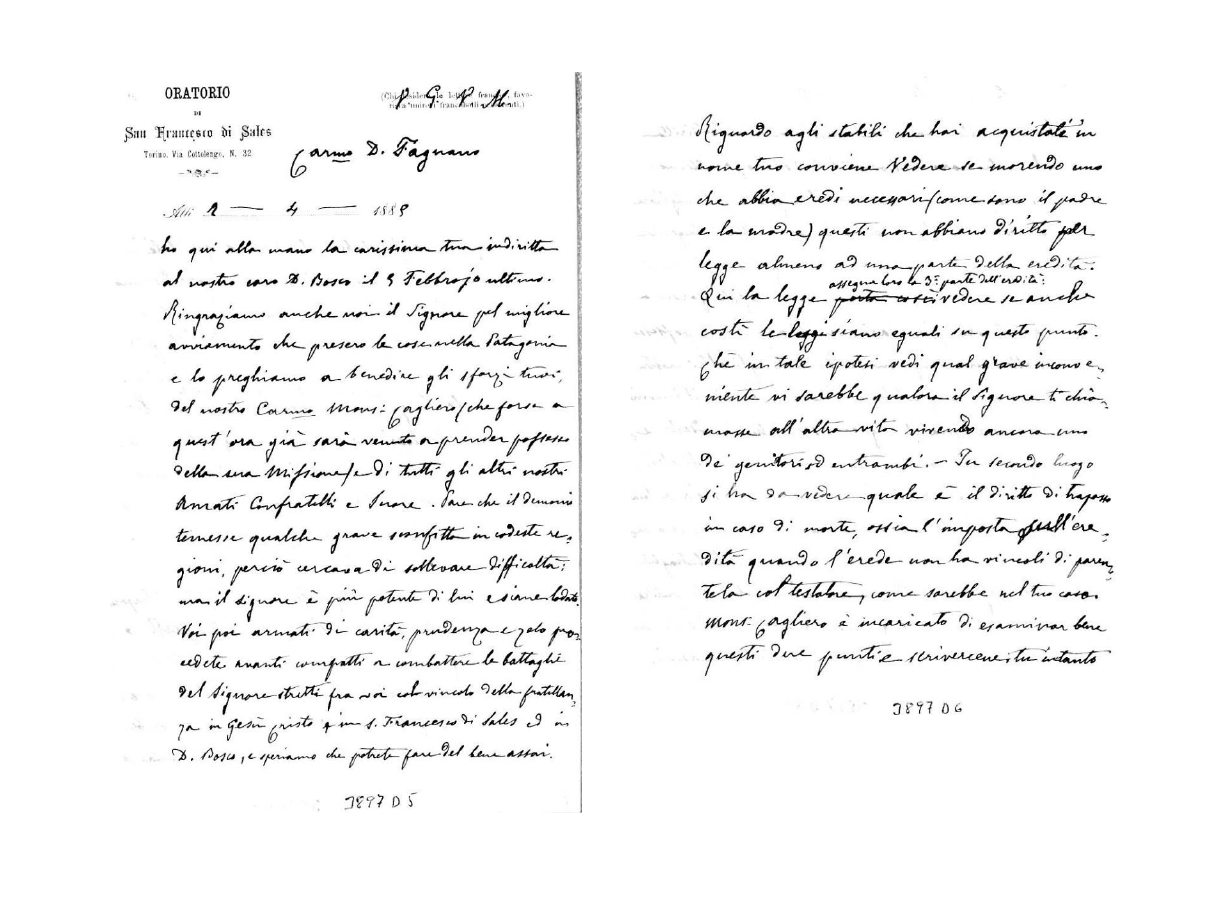 ORATORIO
DI
San Francesco di Sales
Torino, Via Cottolengo, N. 32
(Chi desidera la lettera franca, favorisca unire i francobolli)
V. G. V. M.
Carmo D. Fagnano
Addì 2 — 4 — 1885
ho qui alla mano la carissima tua indiritta
al nostro caro D. Bosco il 5 Febbrajo ultimo.
Ringraziamo anche noi il Signore pel migliore
avviamento che presero le cose nella Patagonia
e lo preghiamo a benedire gli sforzi tuoi,
del nostro Carmo Mons: Cagliero (che forse a
quest'ora già sarà venuto a prender possesso
della sua Missione) e di tutti gli altri nostri
Amati Confratelli e Suore. Pare che il demonio
temesse qualche grave sconfitta in codeste re-
gioni, perciò cercava di sollevare difficoltà;
ma il signore è più potente di lui e siane lodato.
Voi poi armati di carità, prudenza e zelo pro-
cedete avanti compatti a combattere le battaglie
del Signore stretti fra voi col vincolo della fratellan-
za in Gesù Cristo in S. Francesco di Sales ed in
D. Bosco, e speriamo che potrete fare del bene assai.
J897 D 5
Riguardo agli stabili che hai acquistati in
nome tuo conviene vedere se morendo uno
che abbia eredi necessari (come sono il padre
e la madre) questi non abbiano diritto per
legge almeno ad una parte della eredità.
assegna loro la 3ª parte dell'eredità:
Qui la legge porta così vedere se anche
costì le leggi siano eguali su questo punto.
Chè in tale ipotesi vedi qual grave inconve-
niente vi sarebbe qualora il Signore ti chia-
masse all'altra vita vivendo ancora uno
de' genitori od entrambi. – In secondo luogo
si ha da vedere quale è il diritto di trapasso
in caso di morte, ossia l'imposta sull'ere-
dità quando l'erede non ha vincoli di paren-
tela col testatore, come sarebbe nel tuo caso.
Mons: Cagliero è incaricato di esaminar bene
questi due punti e scrivercene; tu intanto
J897 D 6